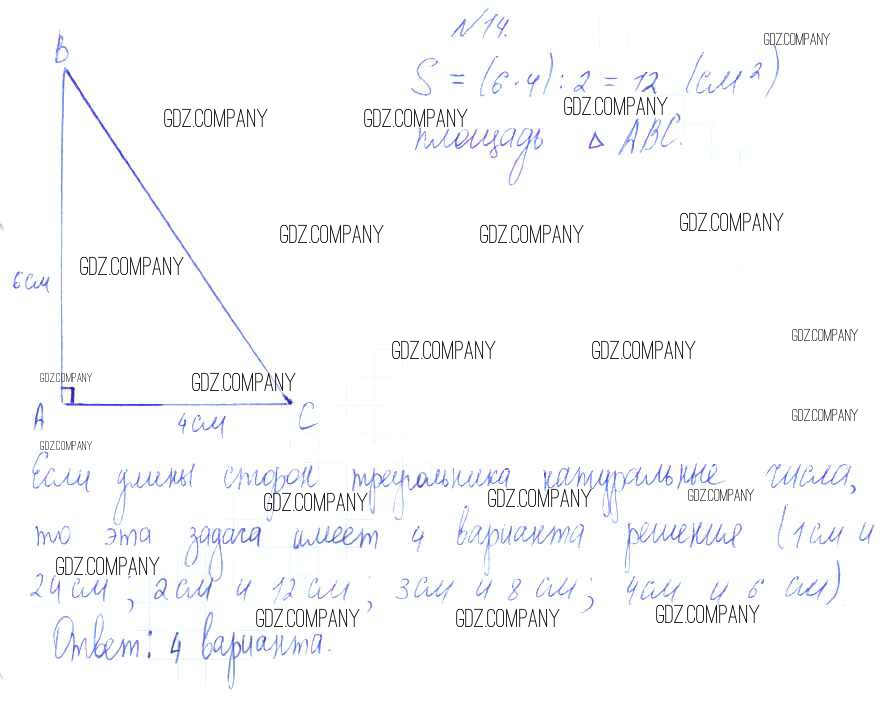 №14.
GDZ.COMPANY
B
S = (6·4):2 = 12 (см²)
GDZ.COMPANY GDZ.COMPANY GDZ.COMPANY
площадь △ ABC.
GDZ.COMPANY GDZ.COMPANY GDZ.COMPANY
GDZ.COMPANY
6см
GDZ.COMPANY GDZ.COMPANY GDZ.COMPANY
GDZ.COMPANY GDZ.COMPANY
A 4см C
GDZ.COMPANY
GDZ.COMPANY
Если длины сторон треугольника натуральные числа,
GDZ.COMPANY GDZ.COMPANY GDZ.COMPANY
то эта задача имеет 4 варианта решения (1см и
GDZ.COMPANY
24см; 2см и 12см; 3см и 8см; 4см и 6 см)
GDZ.COMPANY GDZ.COMPANY GDZ.COMPANY
Ответ: 4 варианта.